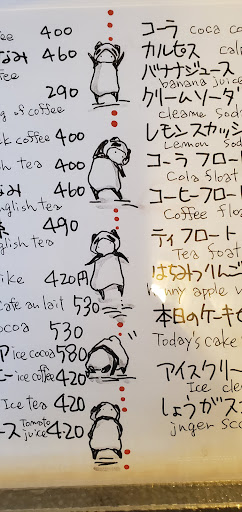 ffee 400
なみ 460
ffee
290
ng of coffee
ck coffee 400
sh tea 400
なみ 460
nglish tea
490
nglish tea
ike 420円
Cafe au lait 530
ocoa 530
ア ice cocoa 580
ー ice coffee 420
Ice tea 420
ース Tomato juice 420
コーラ coca co
カルピス cal
バナナジュース
banana juice
クリームソーダ
cleame soda
レモンスカッシ
Lemon sod
コーラ フロート
Cola float
コーヒーフロート
Coffee float
ティ フロート
Tea float
はちみつりんご
nny apple v
本日のケーキセ
Today's cake
アイスクリー
Ice clea
しょうがス
jnger sco